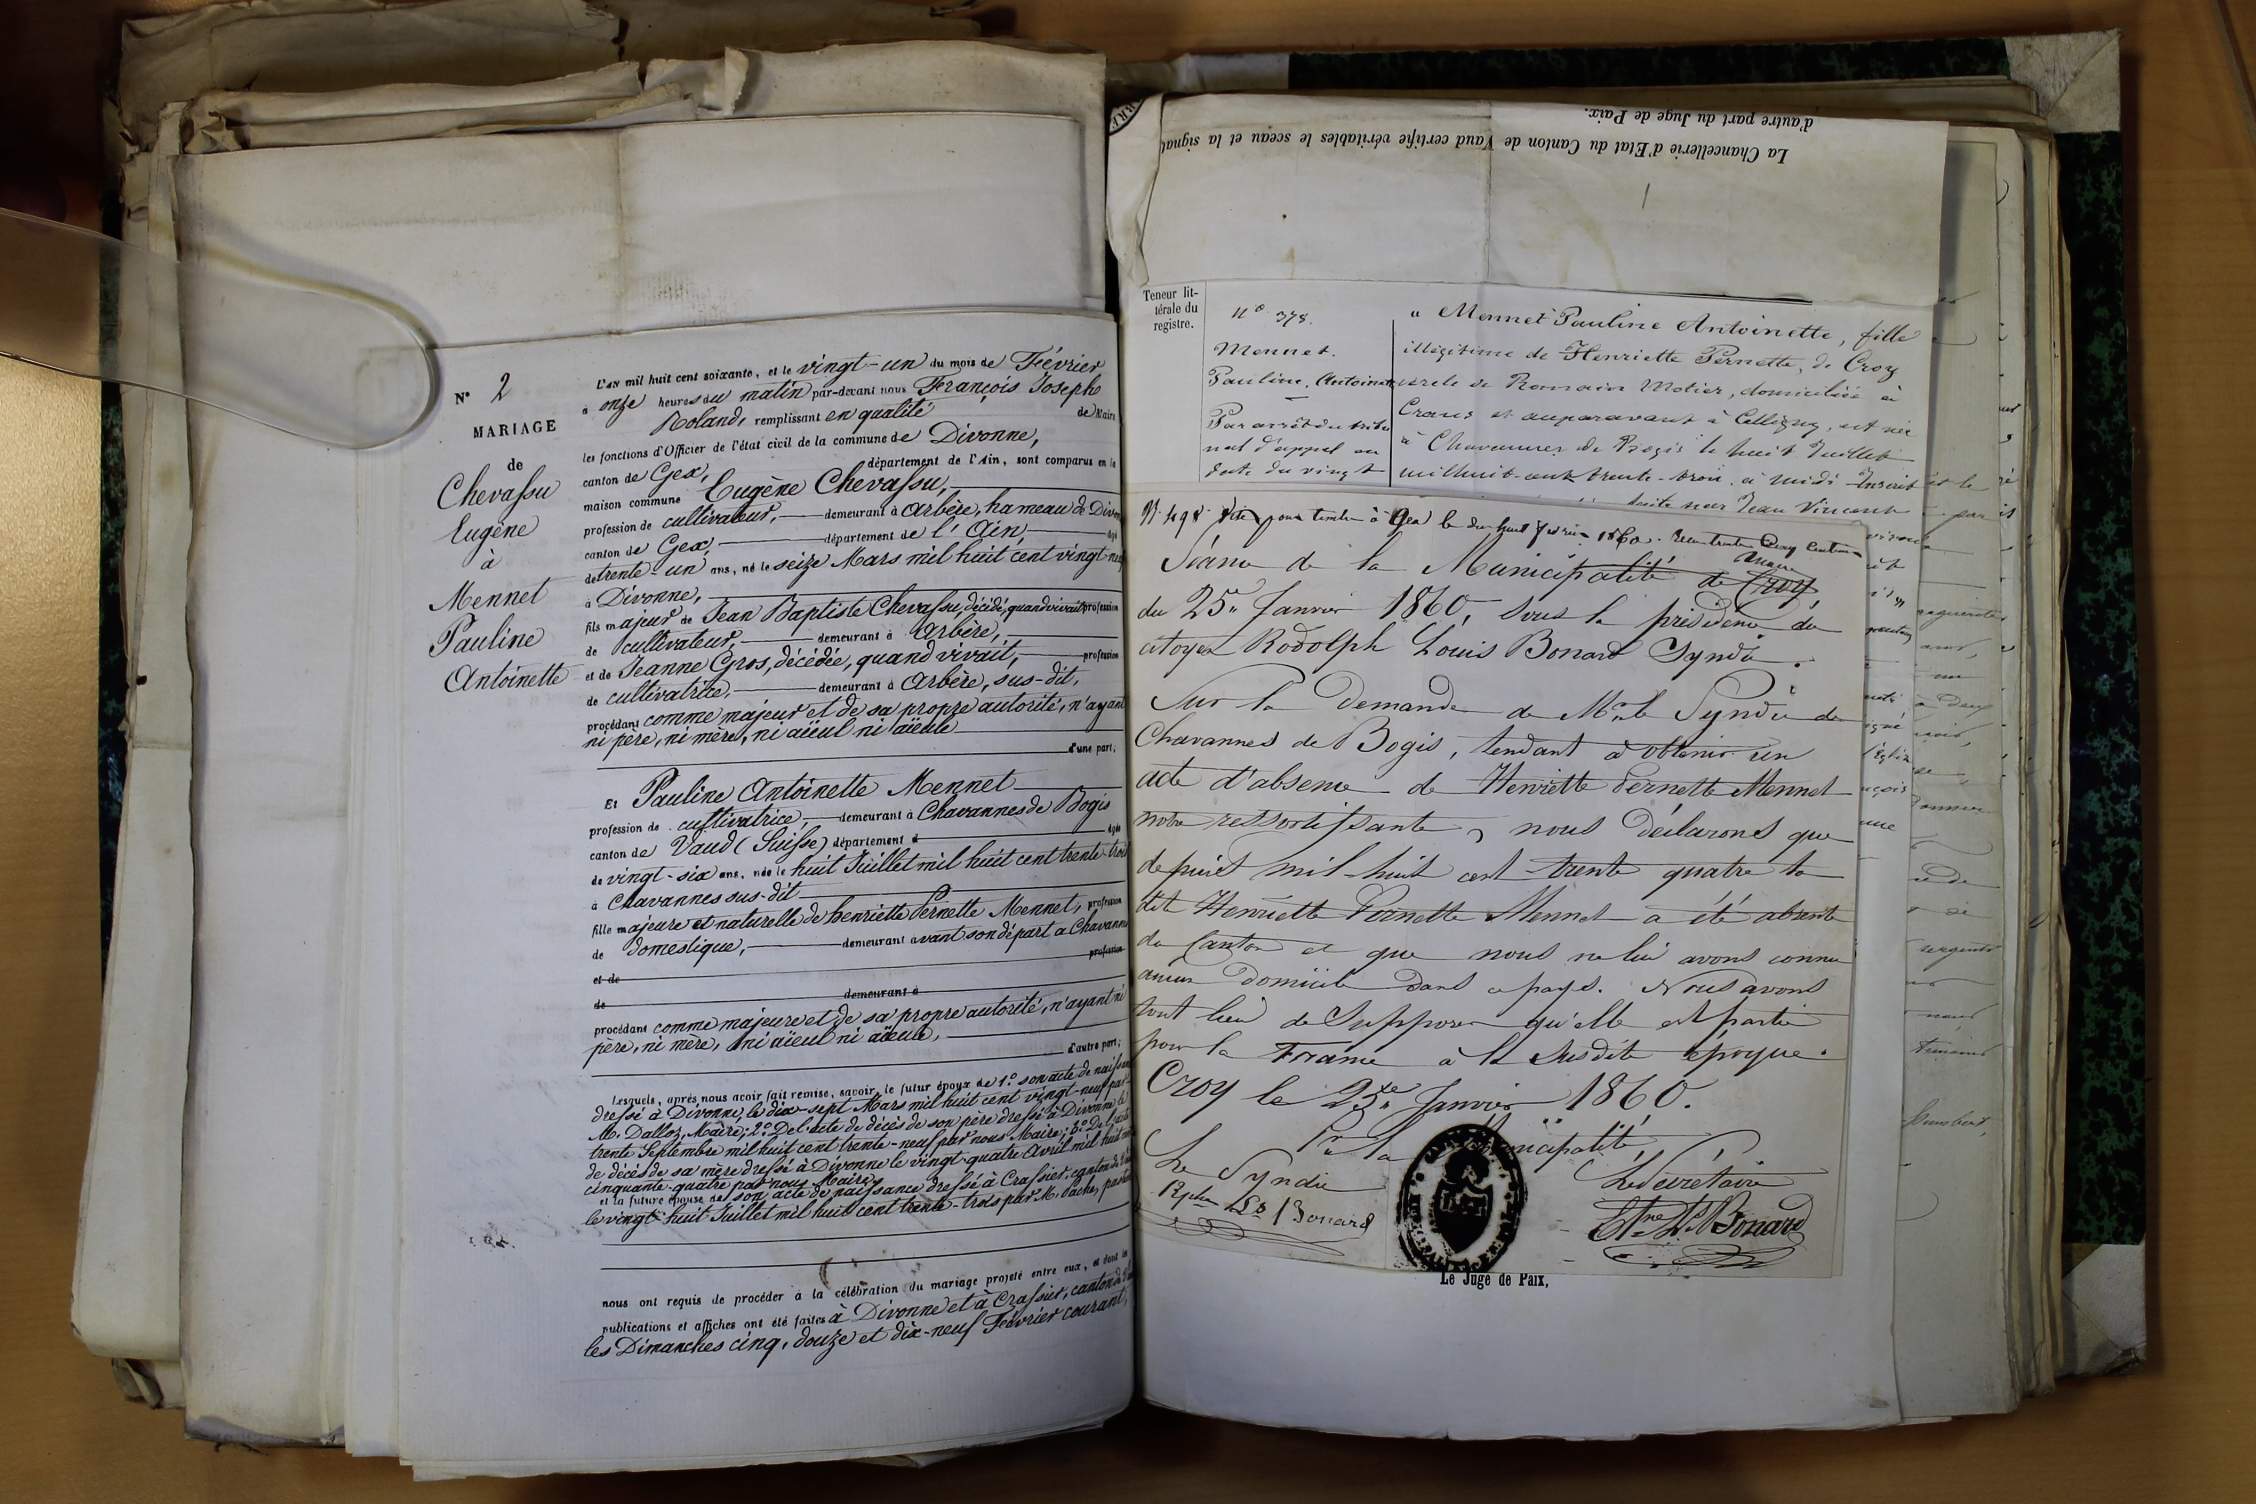 N° 2
MARIAGE
de
Chevassu
Eugène
à
Mennet
Pauline
Antoinette
L'an mil huit cent soixante, et le vingt-un du mois de Février
à onze heures du matin par-devant nous François Joseph
Roland, remplissant en qualité de Maire
les fonctions d'Officier de l'état civil de la commune de Divonne,
canton de Gex, département de l'Ain, sont comparus en la
maison commune Eugène Chevassu,
profession de cultivateur, demeurant à Arbère, hameau de Divonne
canton de Gex, département de l'Ain, âgé
de trente-un ans, né le seize Mars mil huit cent vingt-neuf
à Divonne,
fils majeur de Jean Baptiste Chevassu, décédé, quand vivait profession
de cultivateur, demeurant à Arbère,
et de Jeanne Gros, décédée, quand vivait, profession
de cultivatrice, demeurant à Arbère, sus-dit,
procédant comme majeur et de sa propre autorité, n'ayant
ni père, ni mère, ni aïeul ni aïeule
d'une part;
Et Pauline Antoinette Mennet
profession de cultivatrice, demeurant à Chavannes de Bogis
canton de Vaud (Suisse) département d âgée
de vingt-six ans, née le huit Juillet mil huit cent trente-trois
à Chavannes sus-dit
fille majeure et naturelle de henriette Pernette Mennet, profession
de domestique, demeurant avant son départ a Chavannes
et de profession
de demeurant à
procédant comme majeure et de sa propre autorité, n'ayant ni
père, ni mère, ni aïeul ni aïeule,
d'autre part;
Lesquels, après nous avoir fait remise, savoir, le futur époux de 1° son acte de naissance
dressé à Divonne, le dix-sept Mars mil huit cent vingt-neuf par
M. Dalloz, Maire; 2° De l'acte de décès de son père dressé à Divonne le
trente Septembre mil huit cent trente-neuf par nous Maire; 3° De l'acte
de décès de sa mère dressé à Divonne le vingt-quatre Avril mil huit cent
cinquante-quatre par nous Maire,
et la future épouse de son acte de naissance dressé à Crassier, canton de Vaud
le vingt-huit Juillet mil huit cent trente-trois par M. Pache, pasteur
nous ont requis de procéder à la célébration du mariage projeté entre eux, et dont les
publications et affiches ont été faites à Divonne et à Crassier, canton de Vaud
les Dimanches cinq, douze et dix-neuf Février courant,
d'autre part du Juge de Paix.
La Chancellerie d'Etat du Canton de Vaud certifie véritables le sceau et la signat
Teneur lit-
térale du
registre.
N° 378.
Mennet.
Pauline, Antoinette
Par arrêt du tribu
nal d'appel en
date du vingt
" Mennet Pauline Antoinette, fille
illégitime de Henriette Pernette, de Croy
cercle de Romain Motier, domiciliée à
Crans et auparavant à Celligny, est née
à Chavannes de Bogis le huit Juillet
mil huit cent trente-trois à midi. Inscrit
par Jean Vincent
N° 498 Visé pour timbre à Gex le dix huit février 1860. 
Séance de la Municipalité de Croy
du 25e Janvier 1860, sous la présidence du
citoyen Rodolph Louis Bonard Syndic.
Sur la demande de Mr le Syndic de
Chavannes de Bogis, tendant à obtenir un
acte d'absence de Henriette Pernette Mennet
notre ressortissante, nous déclarons que
depuis mil huit cent trente quatre la
dite Henriette Pernette Mennet a été absente
du Canton et que nous ne lui avons connu
aucun domicile dans ce pays. Nous avons
tout lieu de supposer qu'elle est partie
pour la France à la susdite époque.
Croy le 25e Janvier 1860.
Pr la Municipalité,
Le Syndic
Rphe Ls Bonard
Le Secrétaire
Etne Ls Bonard
Le Juge de Paix,